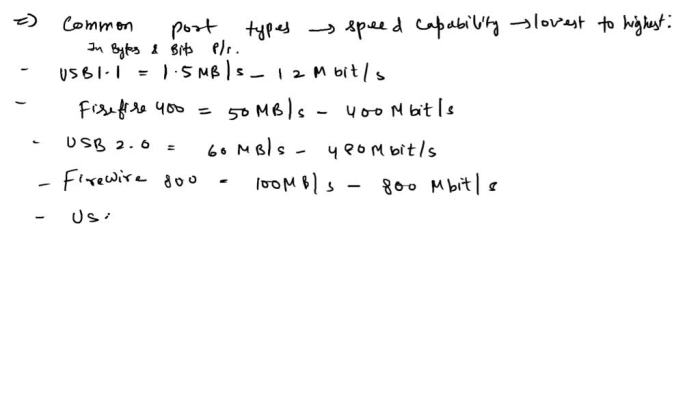 =) Common port types → speed capability → lowest to highest:
In Bytes & Bits P/r.
- USB 1.1 = 1.5 MB/s - 12 Mbit/s
- Firefire 400 = 50 MB/s - 400 Mbit/s
- USB 2.0 = 60 MB/s - 480 Mbit/s
- Firewire 800 - 100 MB/s - 800 Mbit/s
- US.